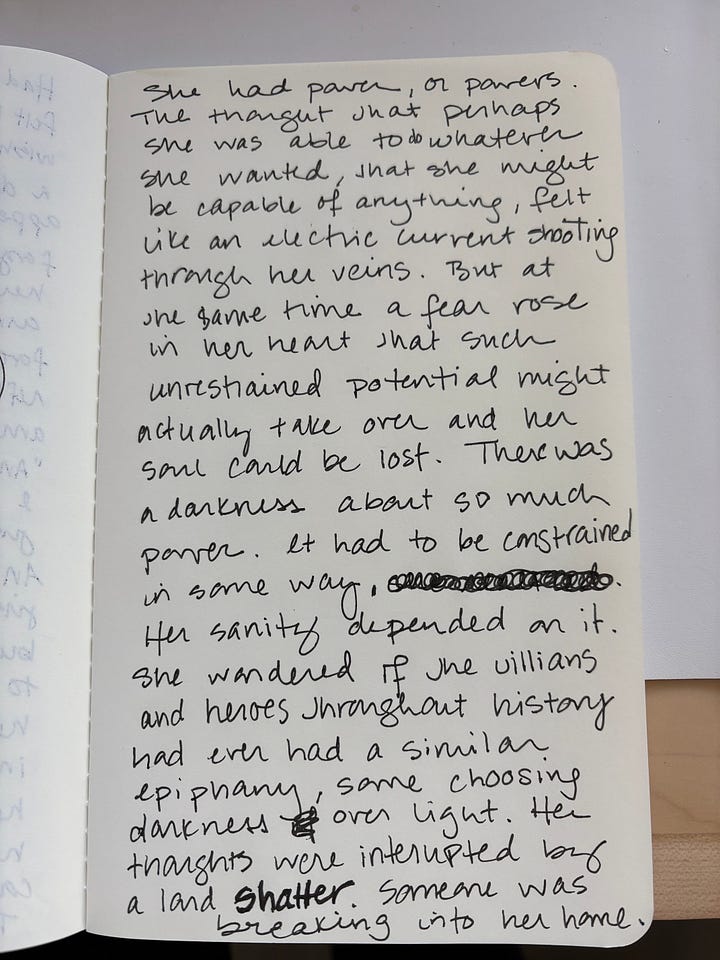 She had power, or powers.
The thought that perhaps
she was able to do whatever
she wanted, that she might
be capable of anything, felt
like an electric current shooting
through her veins. But at
the same time a fear rose
in her heart that such
unrestrained potential might
actually take over and her
soul could be lost. There was
a darkness about so much
power. It had to be constrained
in some way,
Her sanity depended on it.
She wondered if the villians
and heroes throughout history
had ever had a similar
epiphany, some choosing
darkness over light. Her
thoughts were interupted by
a loud shatter. Someone was
breaking into her home.